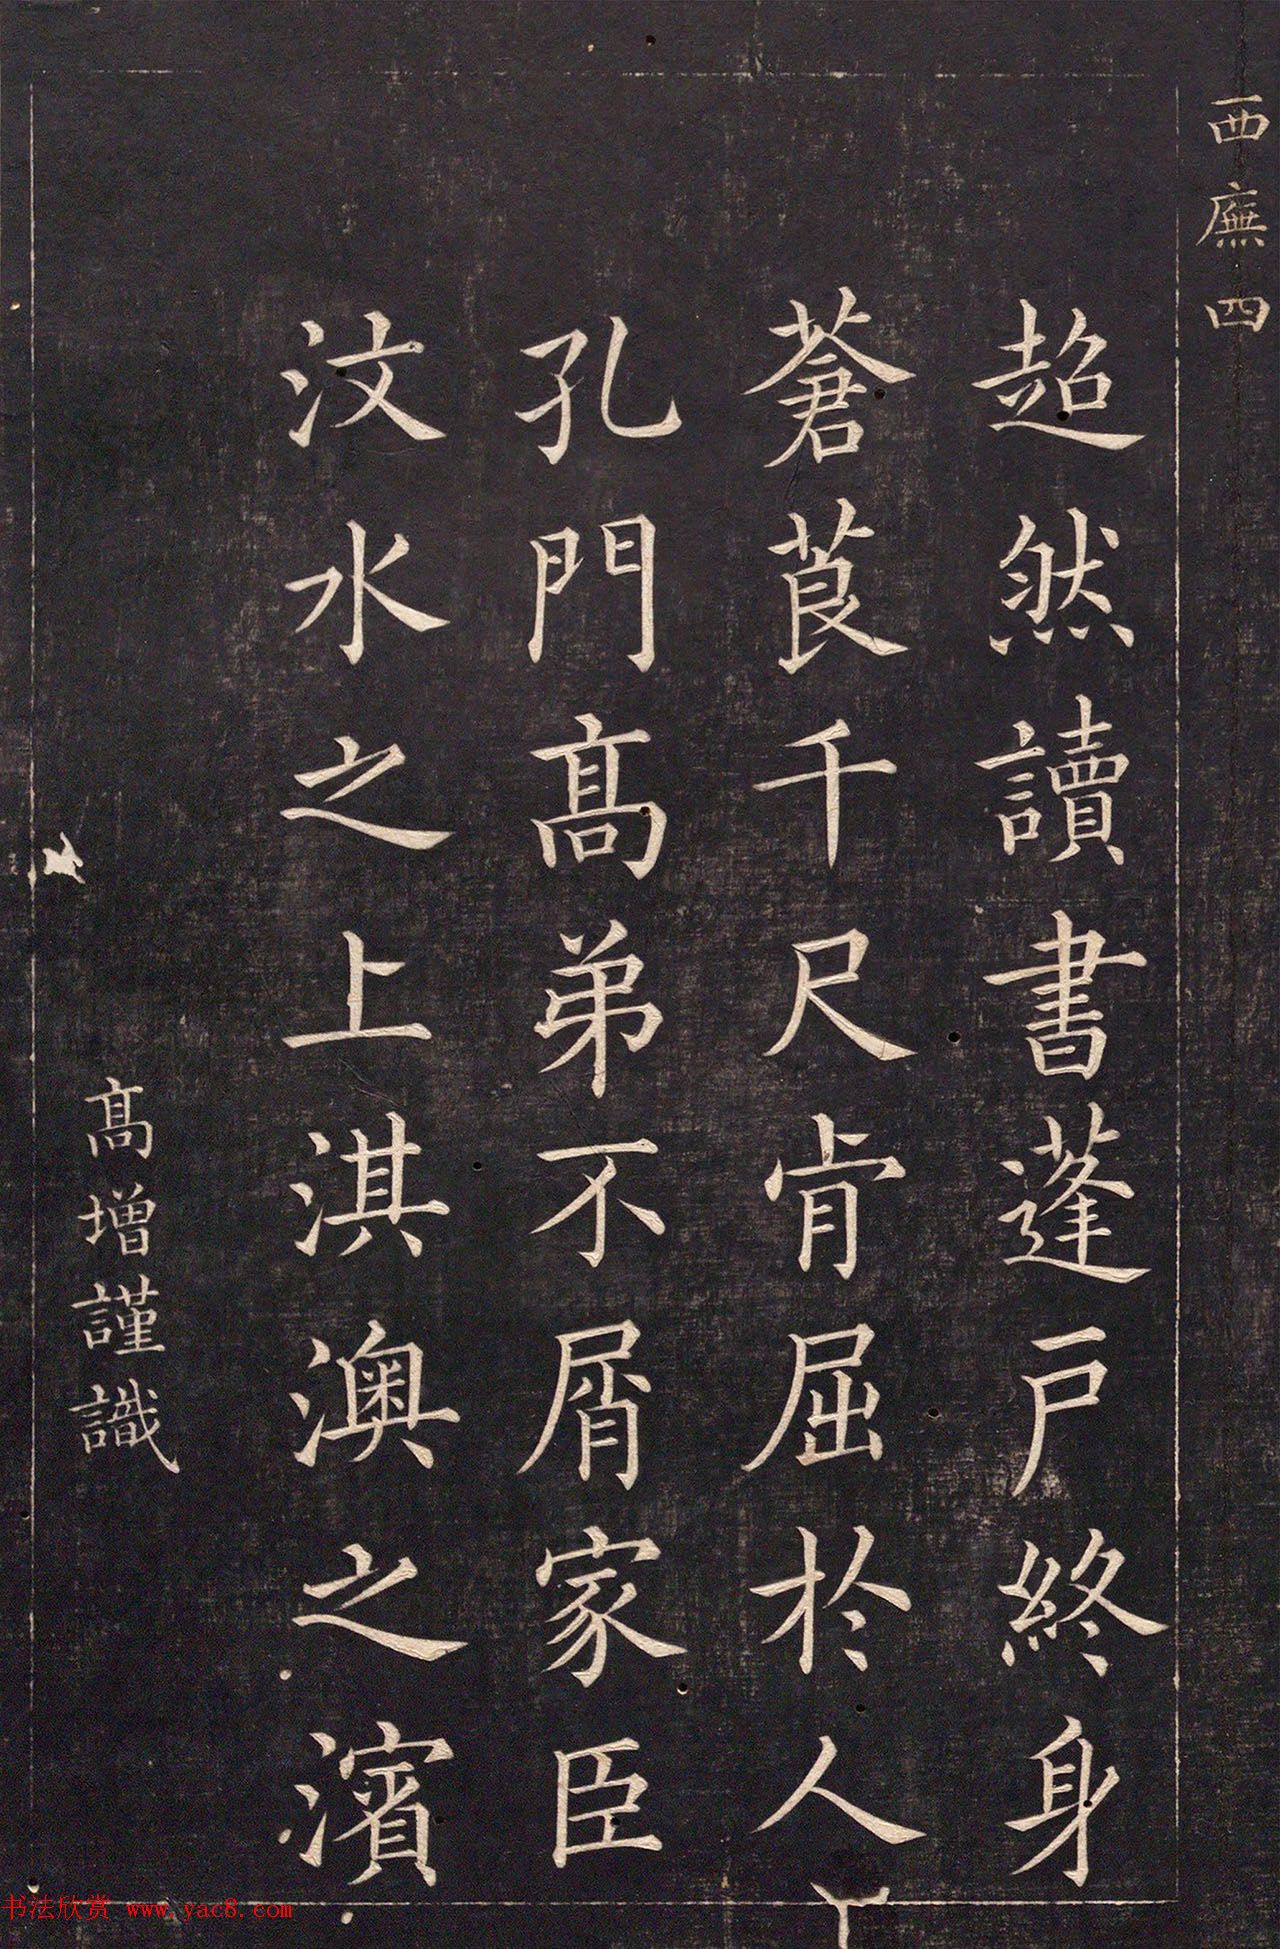 西廡四
超然讀書蓬戸終身
蒼莨千尺肯屈於人
孔門髙弟不屑家臣
汶水之上淇澳之濱
髙增謹識
书法欣赏 www.yac8.com